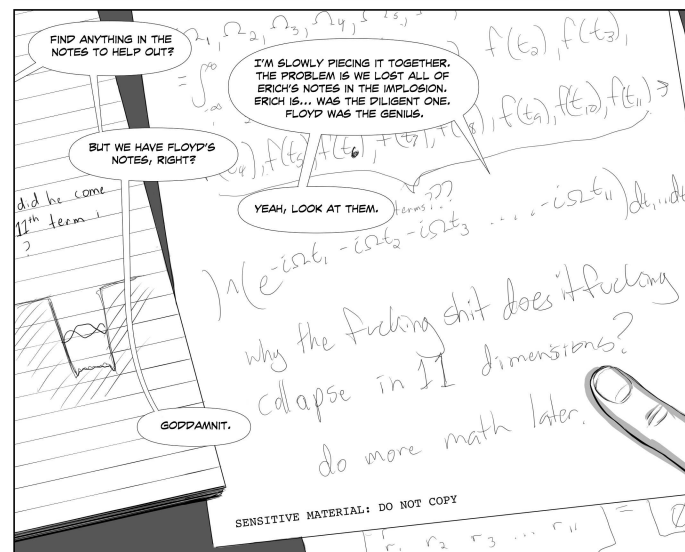 FIND ANYTHING IN THE
NOTES TO HELP OUT?
I'M SLOWLY PIECING IT TOGETHER.
THE PROBLEM IS WE LOST ALL OF
ERICH'S NOTES IN THE IMPLOSION.
ERICH IS... WAS THE DILIGENT ONE.
FLOYD WAS THE GENIUS.
BUT WE HAVE FLOYD'S
NOTES, RIGHT?
YEAH, LOOK AT THEM.
GODDAMNIT.
did he come
11th term
?
Ω₂, Ω₃, Ω₄,
f(t₂), f(t₃),
f(t₅), f(t₆), f(t₇), f(t₉), f(t₁₀), f(t₁₁)
terms???
) ∧ (e^-iΩt₁ -iΩt₂ -iΩt₃ .... -iΩt₁₁) dt₁...dt
why the fucking shit does it fucking
collapse in 11 dimensions?
do more math later.
SENSITIVE MATERIAL: DO NOT COPY
r₁ r₂ r₃ ... r₁₁ ] =